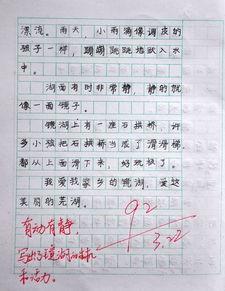 漂流。雨天，小雨滴像调皮的
孩子一样，蹦蹦跳跳地放入水
中。
湖面有时非常静，静的就
像一面镜子。
镜湖上有一座石拱桥，许
多小孩把石拱桥当成了滑滑梯，
都从上面滑下来，好玩极了。
我爱我家乡的镜湖，爱这
美丽的芜湖。
92
3.22
有动有静，
写出了镜湖的
和活力。